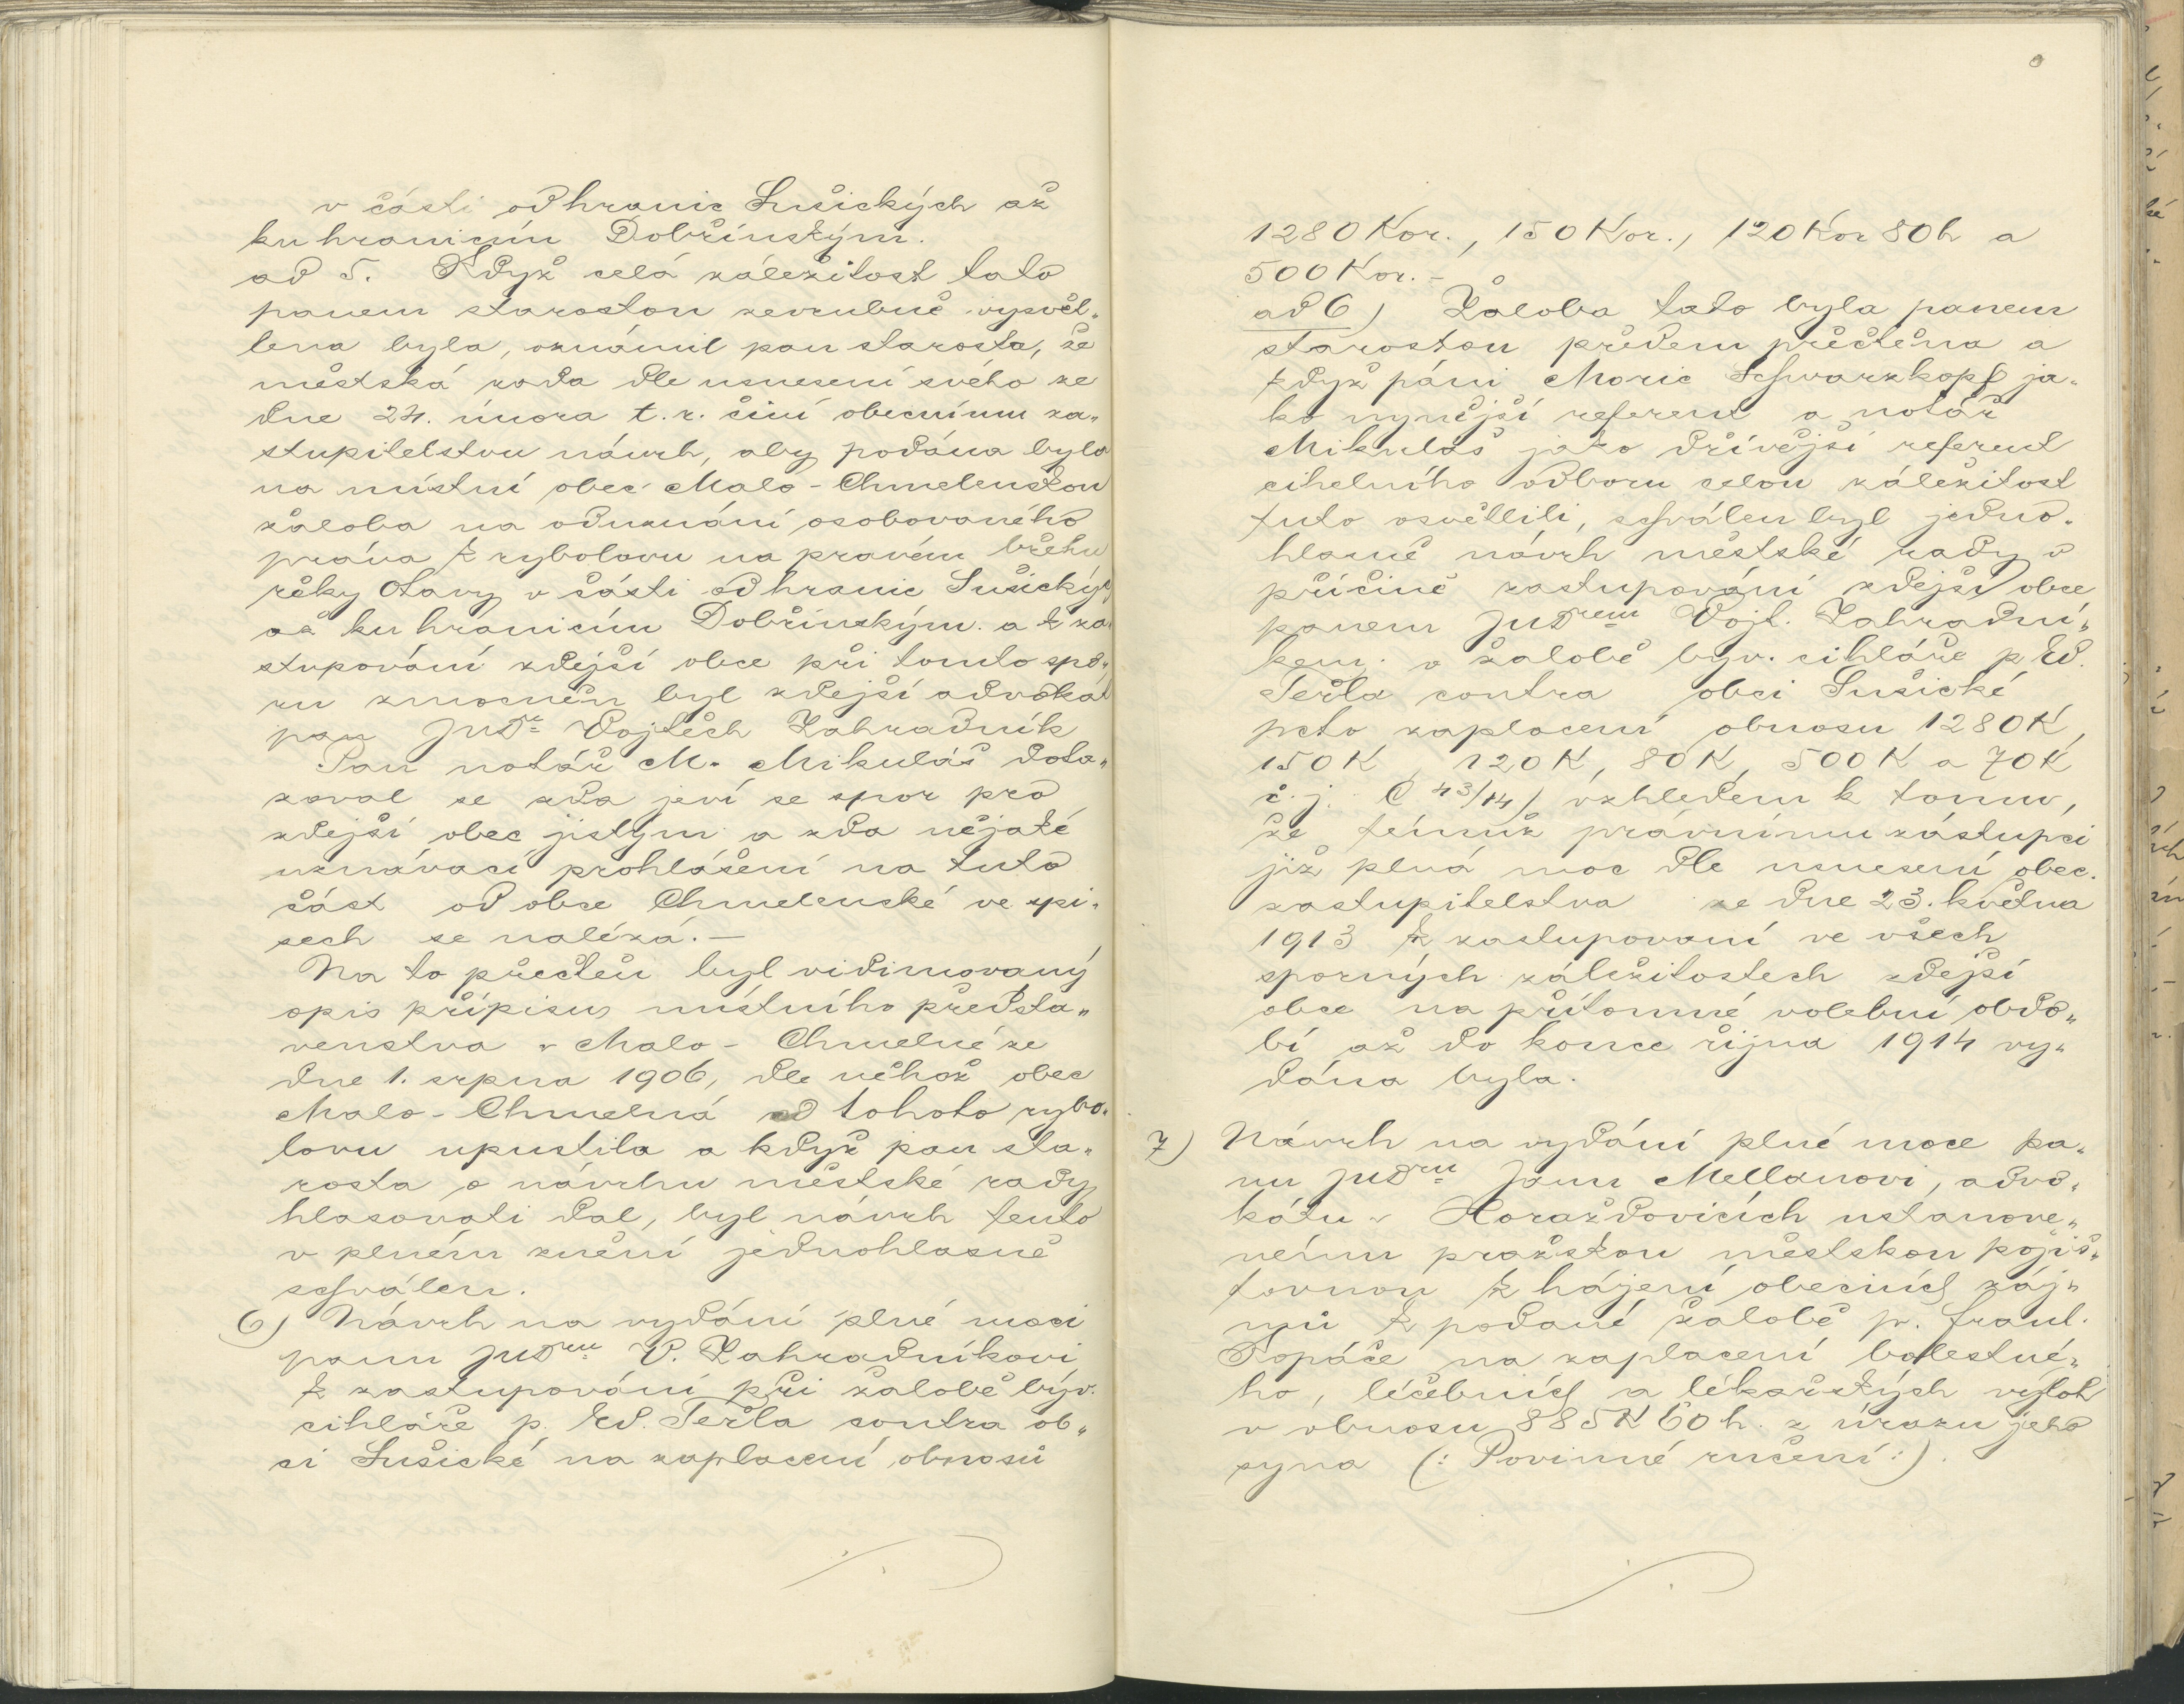 v části od hranic Sušických až
ku hranicím Dobřínským.
ad 5. Když celá záležitost tato
panem starostou zevrubně vysvět„
lena byla, oznámil pan starosta, že
městská rada dle usnesení svého ze
dne 24. února t. r. činí obecnímu za„
stupitelstvu návrh, aby podána byla
na místní obec Malo-Chmelenskou
žaloba na oduznání osobovaného
práva k rybolovu na pravém břehu
řeky Otavy v části od hranic Sušických
až ku hranicím Dobřínským. a k za„
stupování zdejší obce při tomto spo„
ru zmocněn byl zdejší advokát
pan JUDr. Vojtěch Zahradník
Pan notář M. Mikuláš dota„
zoval se zda jeví se spor pro
zdejší obec jistým a zda nějaké
uznávací prohlášení na tuto
část od obce Chmelenské ve spi„
sech se nalézá. —
Na to přečten byl vidimovaný
opis přípisu místního předsta„
venstva v Malo-Chmelné ze
dne 1. srpna 1906, dle něhož obec
Malo-Chmelná od tohoto rybo„
lovu upustila a když pan sta„
rosta o návrhu městské rady
hlasovati dal, byl návrh tento
v plném znění jednohlasně
schválen.
6) Návrh na vydání plné moci
panu JUDru V. Zahradníkovi
k zastupování při žalobě býv.
cihláře p. Ed. Teřla contra ob„
ci Sušické na zaplacení obnosů
1280 Kor., 150 Kor., 120 Kor 80 h a
500 Kor. –
ad 6) Žaloba tato byla panem
starostou předem přečtena a
když páni Moric Schwarzkopf ja„
ko nynější referent a notář
Mikuláš jako dřívější referent
cihelního odboru celou záležitost
tuto osvětlili, schválen byl jedno„
hlasně návrh městské rady v
příčině zastupování zdejší obce
panem JUDrem Vojt. Zahradní„
kem v žalobě býv. cihláře p. Ed.
Teřla contra obci Sušické
pcto zaplacení obnosu 1280 K,
150 K, 120 K, 80 K, 500 K a 70 K
č. j. C 43/14) vzhledem k tomu,
že témuž právnímu zástupci
již plná moc dle usnesení obec.
zastupitelstva ze dne 23. května
1913 k zastupovaní ve všech
sporných záležitostech zdejší
obce na přítomné volební obdo„
bí až do konce října 1914 vy„
dána byla.
7) Návrh na vydání plné moce pa„
nu JUDru Janu Mellanovi, advo„
kátu v Horažďovicích ustanove„
nému pražskou městskou pojiš„
ťovnou k hájení obecních záj„
mů k podané žalobě p. Frant.
Kopáče na zaplacení bolestné„
ho, léčebních a lékařských výloh
v obnosu 885 K 60 h. z úrazu jeho
syna (: Povinné ručení :).